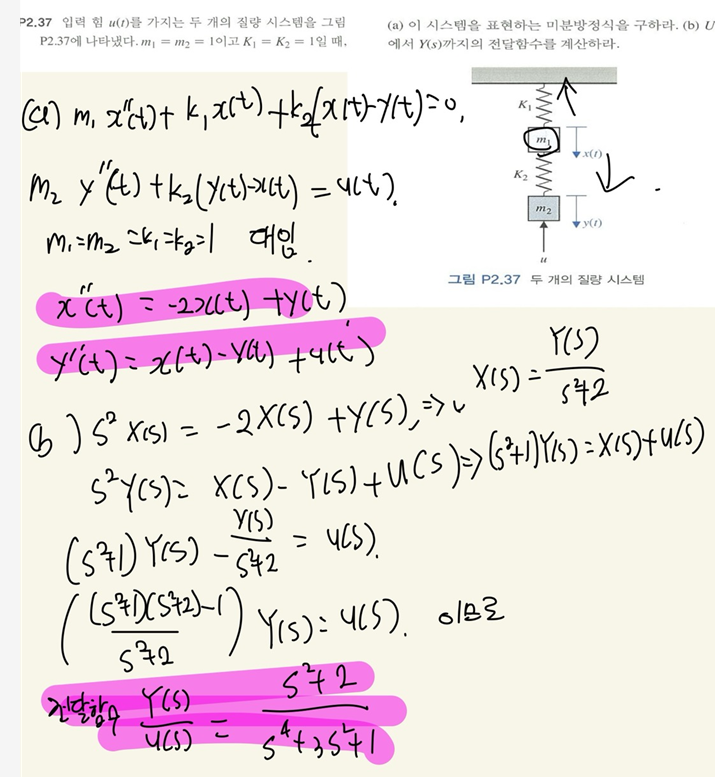 P2.37 입력 힘 u(t)를 가지는 두 개의 질량 시스템을 그림
P2.37에 나타냈다. m₁ = m₂ = 1이고 K₁ = K₂ = 1일 때,
(a) 이 시스템을 표현하는 미분방정식을 구하라. (b) U
에서 Y(s)까지의 전달함수를 계산하라.
K₁
m₁
x(t)
K₂
m₂
y(t)
u
그림 P2.37 두 개의 질량 시스템
(a) m₁ x''(t) + k₁x(t) + k₂(x(t)-y(t)=0,
m₂ y''(t) + k₂(y(t)-x(t)) = u(t).
m₁=m₂=k₁=k₂=1 대입.
x''(t) = -2x(t) + y(t)
y''(t) = x(t) - y(t) + u(t)
(b) s²X(s) = -2X(s) + Y(s), => X(s) = Y(s)/s²+2
s²Y(s) = X(s) - Y(s) + U(s) => (s²+1)Y(s) = X(s)+U(s)
(s²+1)Y(s) - Y(s)/s²+2 = U(s).
((s²+1)(s²+2)-1/s²+2) Y(s) = U(s). 이므로
전달함수 Y(s)/U(s) = s²+2/s⁴+3s²+1